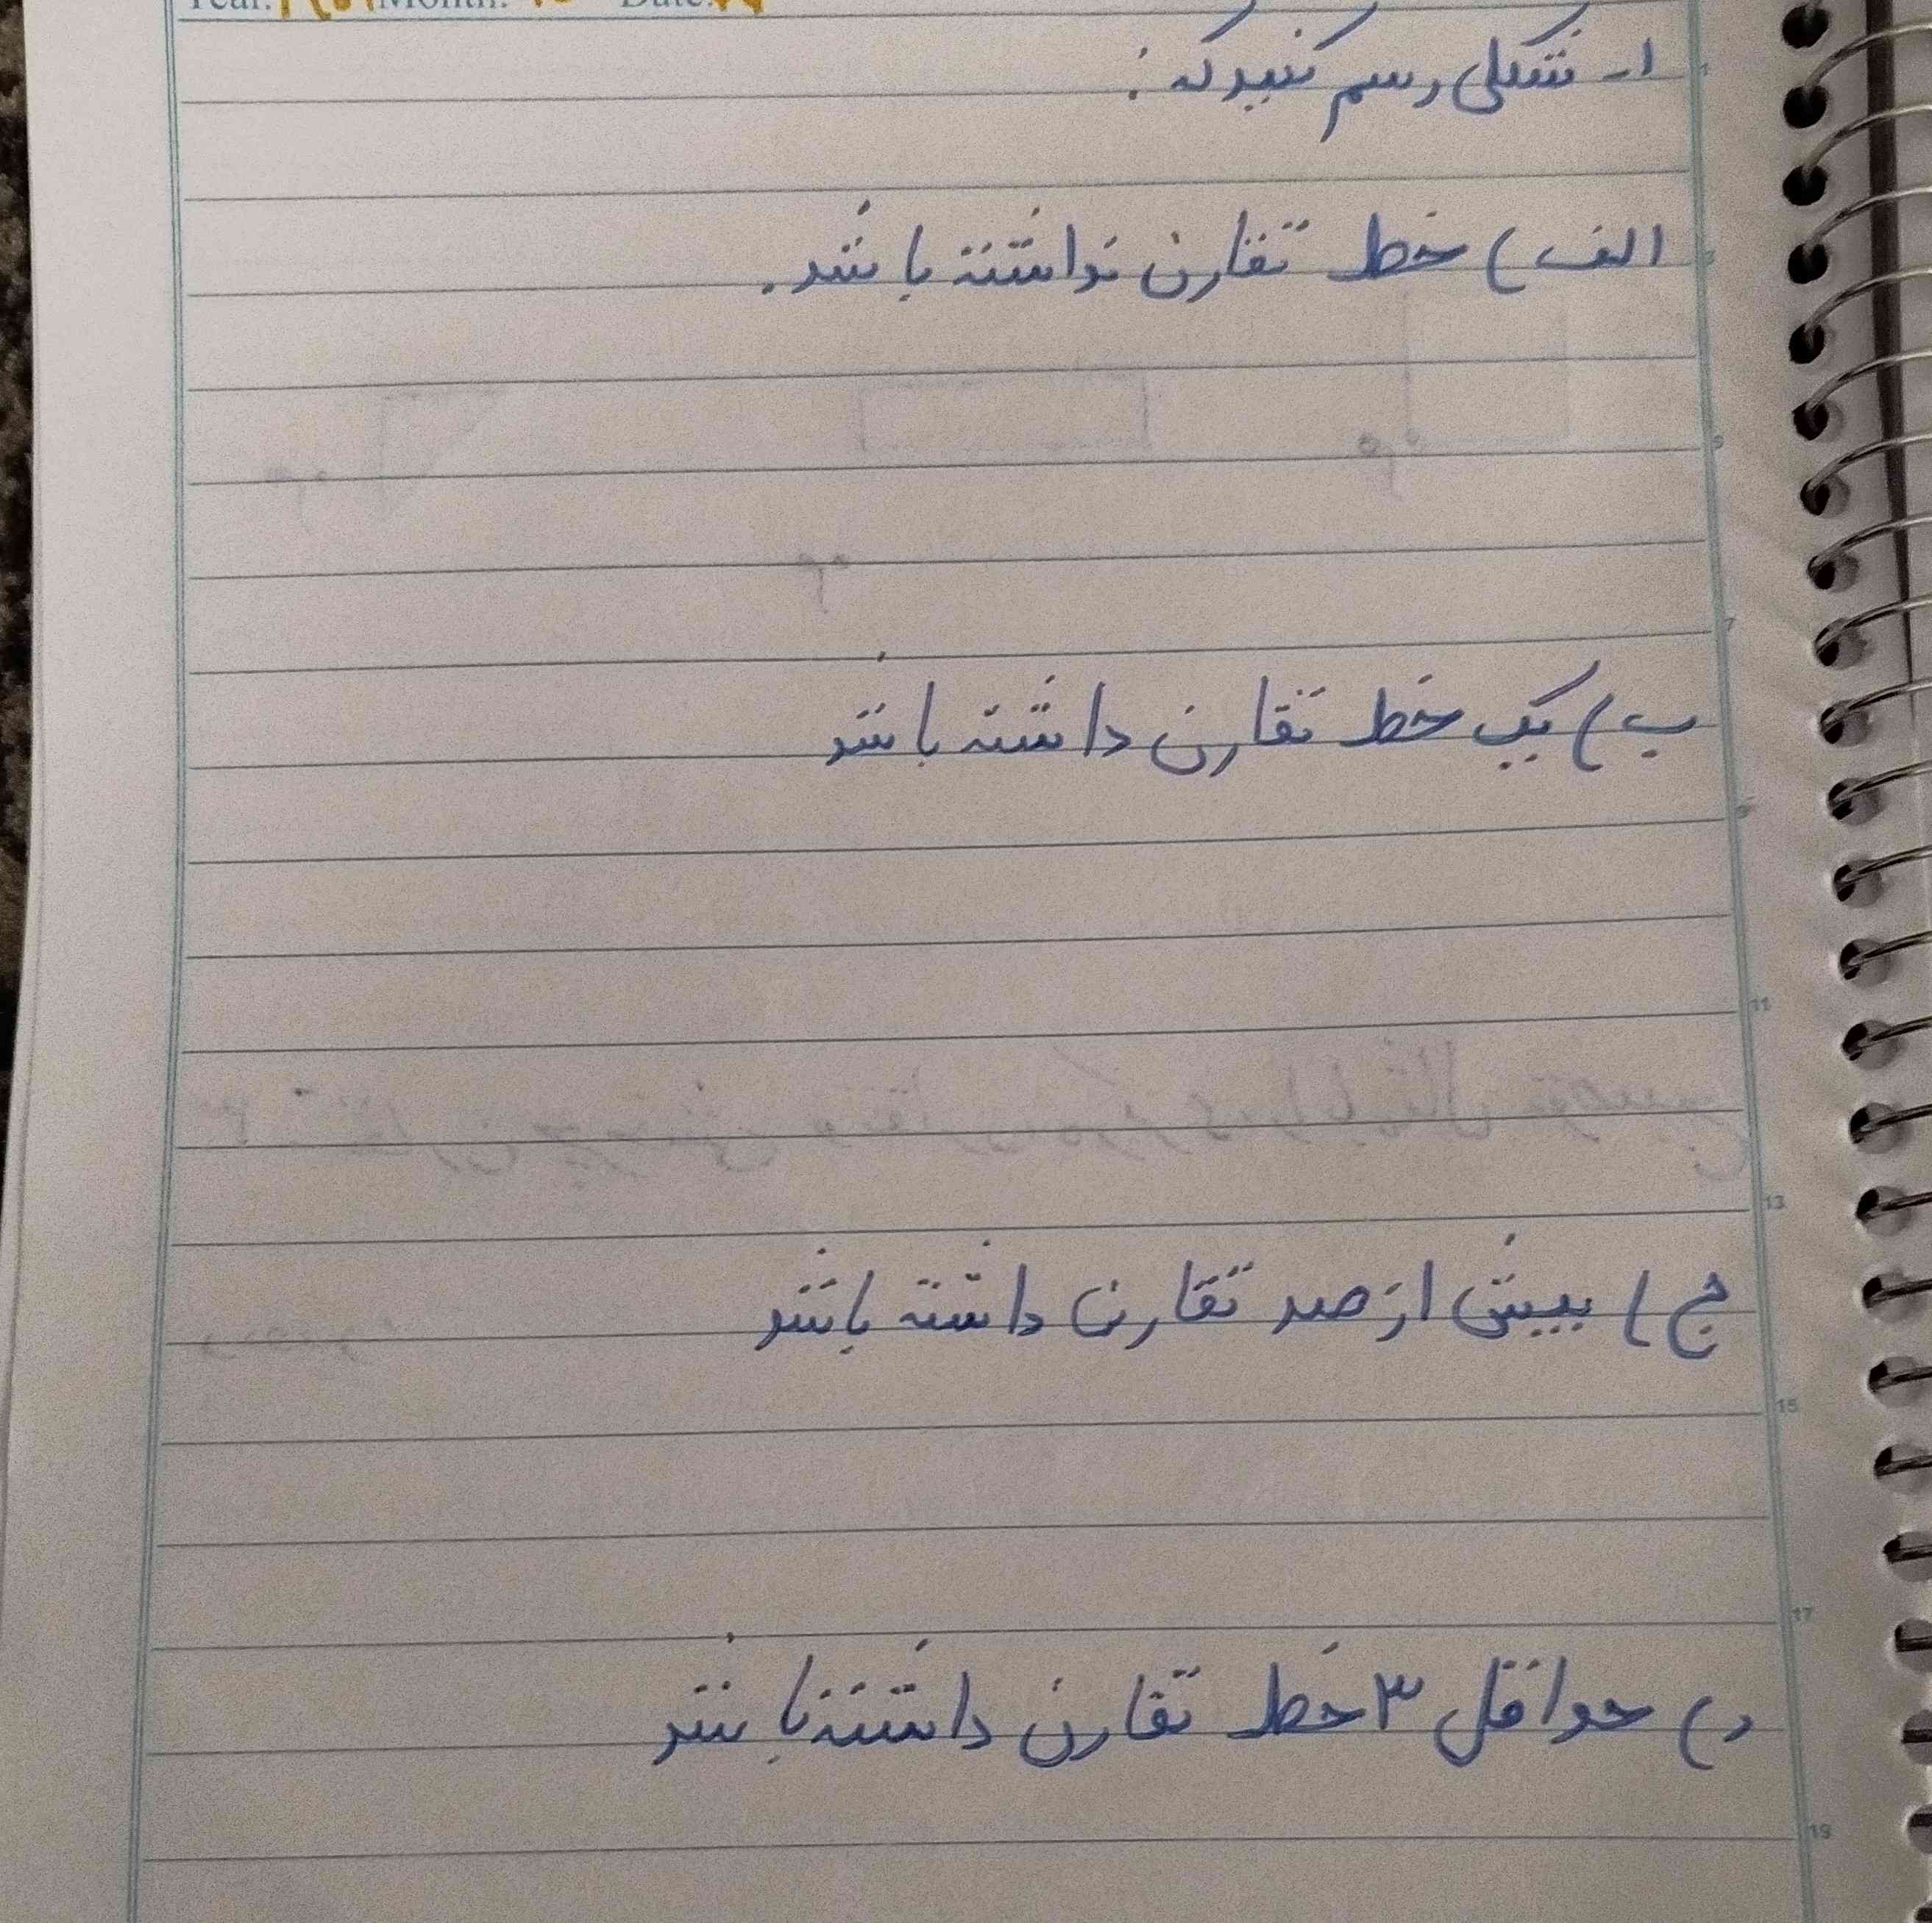 Year: Month: Date:
۱ـ شکلی رسم کنید که :
الف) خط تقارن نداشته باشد.
ب) یک خط تقارن داشته باشد
ج) بیش از صد تقارن داشته باشد
د) حداقل ۳ خط تقارن داشته باشد